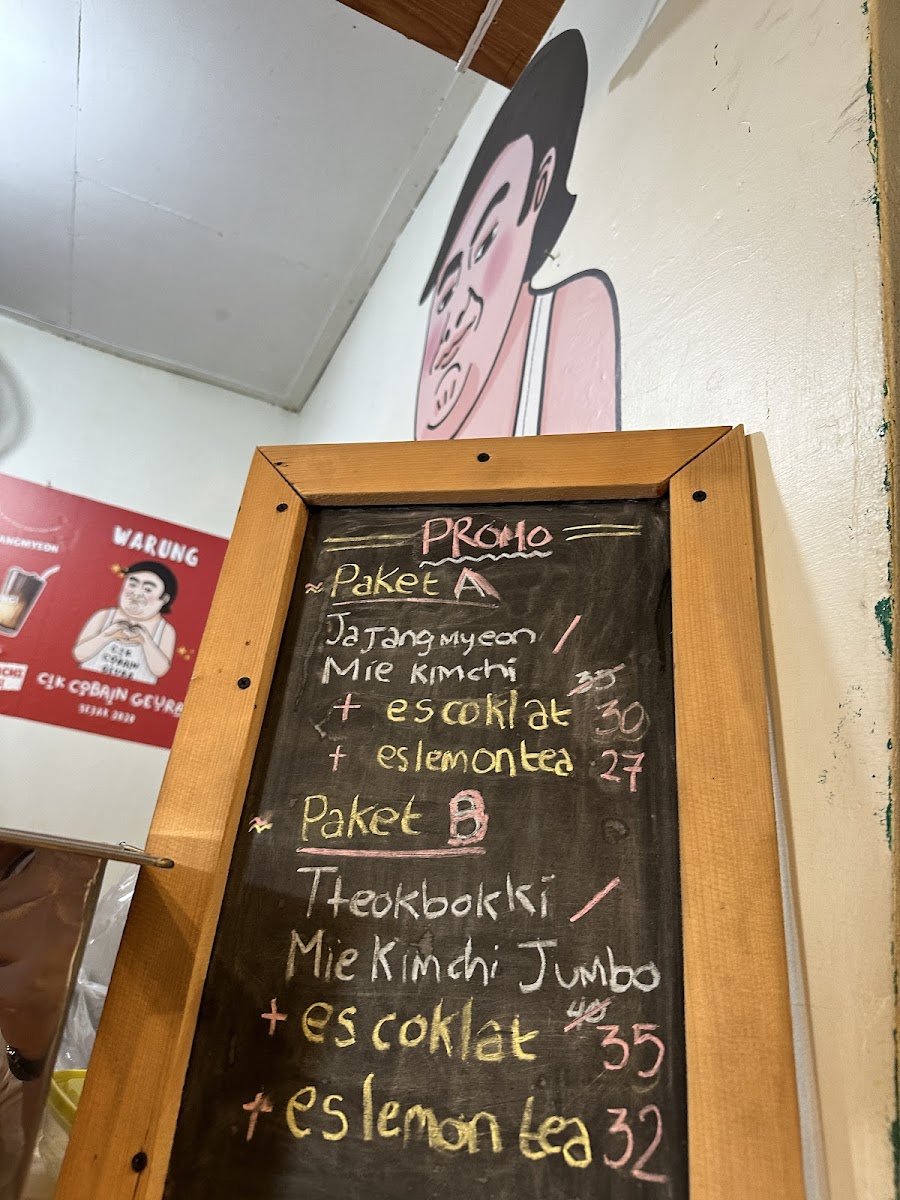 PROMO
Paket A
Jajangmyeon /
Mie Kimchi
35
+ es coklat 30
+ es lemon tea 27
Paket B
Tteokbokki /
Mie Kimchi Jumbo
40
+ es coklat 35
+ es lemon tea 32
ANGMYEON
WARUNG
CIK
COBAIN
GEURA
CIK COBAIN GEURA
SEJAK 2020